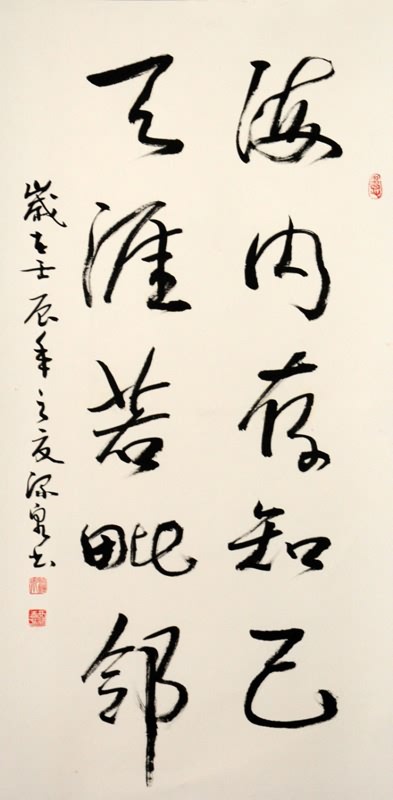 海内存知己
天涯若毗邻
歲在壬辰年之夏泉书